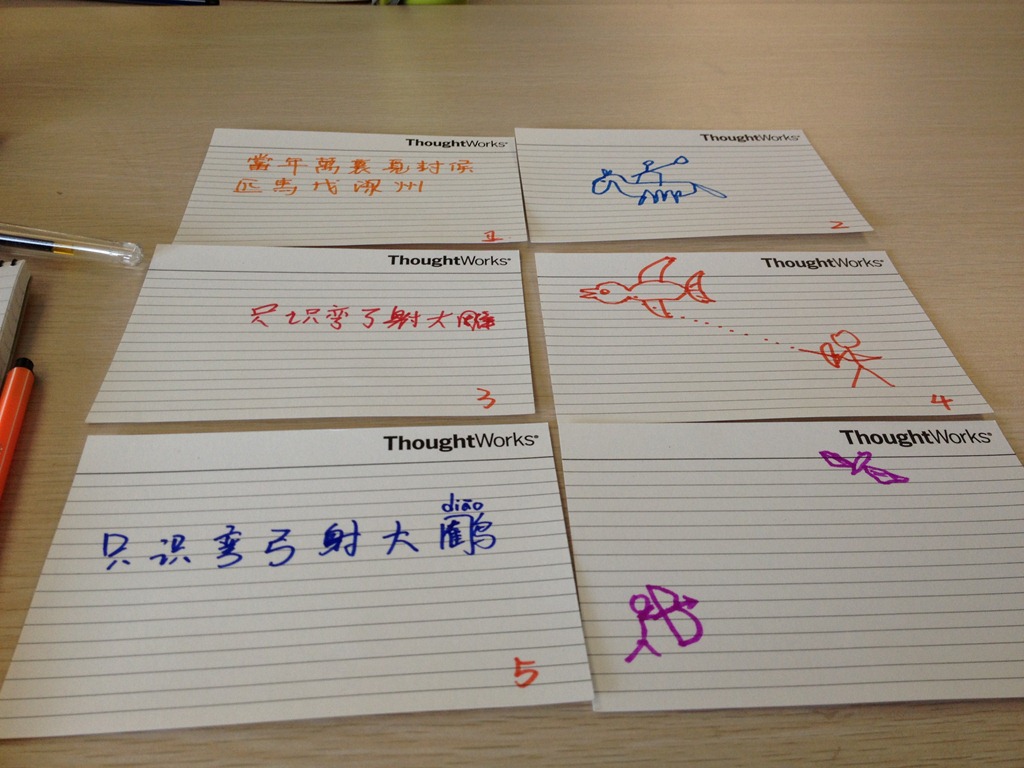 ThoughtWorks
當年萬裏覓封候
匹馬戍 州
1
ThoughtWorks
2
ThoughtWorks
只识弯弓射大雕
3
ThoughtWorks
4
ThoughtWorks
diāo
只识弯弓射大
5
ThoughtWorks